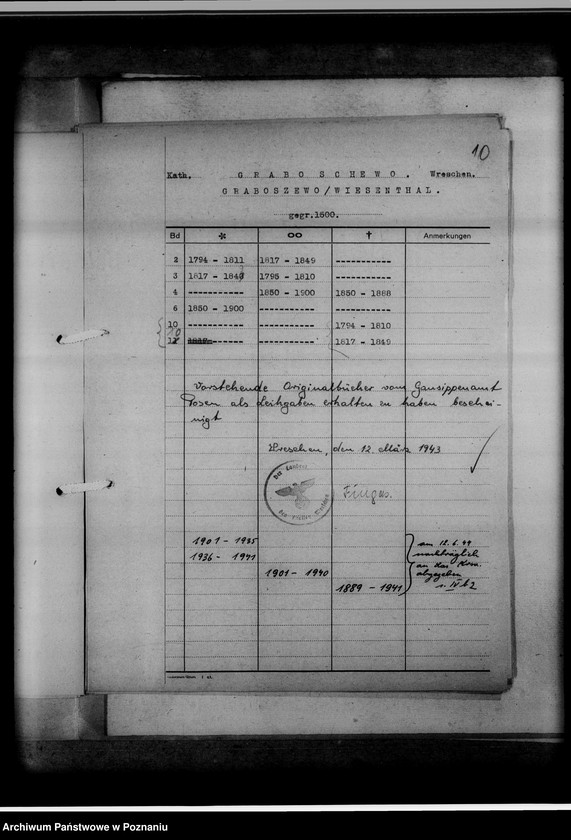 10
Kath. GRABOSCHEWO. Wreschen.
GRABOSZEWO/WIESENTHAL.
gegr.1600.
Bd * oo † Anmerkungen
2 1794 - 1811 1817 - 1849 -----------
3 1817 - 1849 1795 - 1810
4 ----------- 1850 - 1900 1850 - 1888
6 1850 - 1900 ----------- -----------
10 ----------- ----------- 1794 - 1810
10 ----------- ----------- 1817 - 1849
Vorstehende Originalbücher vom Gausippenamt
Posen als Leihgaben erhalten zu haben beschei-
nigt
Wreschen, den 12. März 1943
Der Landrat
1901 - 1935
1936 - 1941
1901 - 1940
1889 - 1941
am 12.6.44
nachträglich
an das
abgegeben
Archiwum Państwowe w Poznaniu